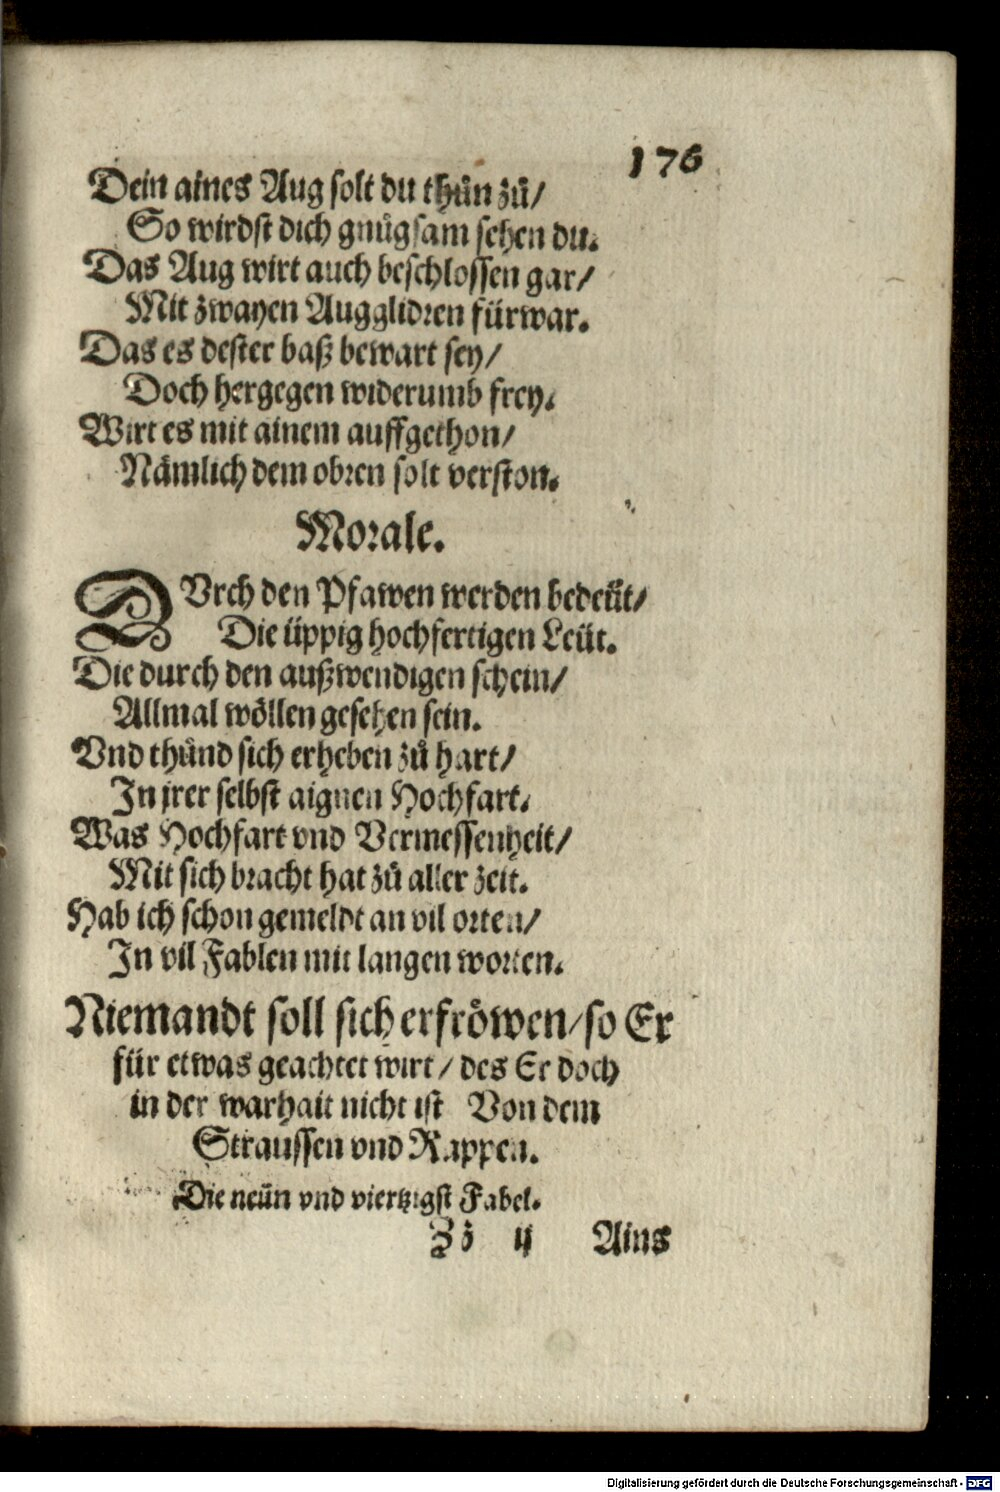 176
Dein aines Aug solt du thůn zů/
So wirdst dich gnůgsam sehen du.
Das Aug wirt auch beschlossen gar/
Mit zwayen Augglidren fürwar.
Das es dester baß bewart sey/
Doch hergegen widerumb frey.
Wirt es mit ainem auffgethon/
Nämlich dem obren solt verston.
Morale.
DVrch den Pfawen werden bedeüt/
Die üppig hochfertigen Leüt.
Die durch den außwendigen schein/
Allmal wöllen gesehen sein.
Vnd thůnd sich erheben zů hart/
In jrer selbst aignen Hochfart.
Was Hochfart vnd Vermessenheit/
Mit sich bracht hat zů aller zeit.
Hab ich schon gemeldt an vil orten/
In vil Fablen mit langen worten.
Niemandt soll sich erfröwen/so Er
für etwas geachtet wirt/ des Er doch
in der warhait nicht ist Von dem
Straussen vnd Rappen.
Die neün vnd viertzigst Fabel.
Zz ij Ains
Digitalisierung gefördert durch die Deutsche Forschungsgemeinschaft - DFG